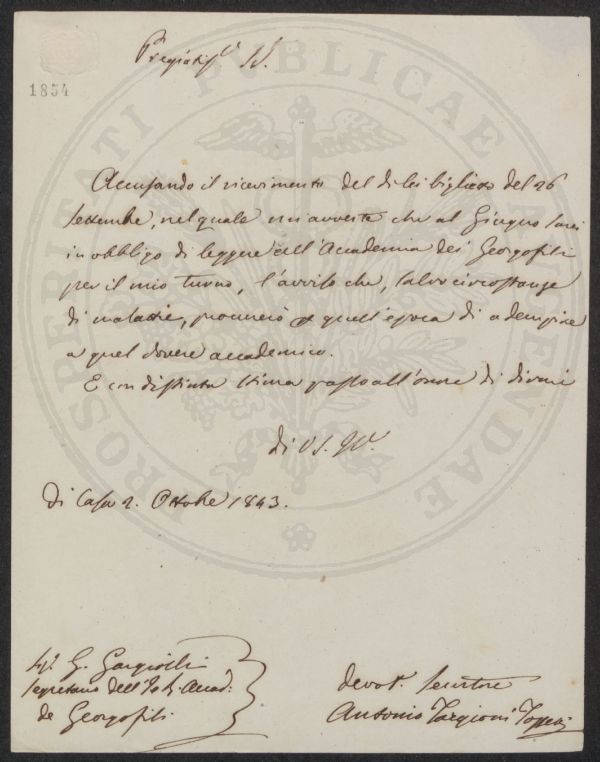 1854
Pregiatis.e Sr.
Accusando il ricevimento del di lei biglietto del 26
Settembre, nel quale mi avverte che al Giugno sarei
in obbligo di leggere all'Accademia dei Georgofili
per il mio turno, l'avviso che, salvo circostanze
di malattie, procurerò a quell'epoca di adempire
a quel dovere accademico.
E con distinta stima passo all'onore di dirmi
di VS.
Di Casa 2. Ottobre 1843.
G. Gargiolli
Segretario dell'I. e R. Accad.
de Georgofili
devot. Servitore
Antonio Targioni Tozzetti
PROSPERITATI PUBLICAE AUGENDAE